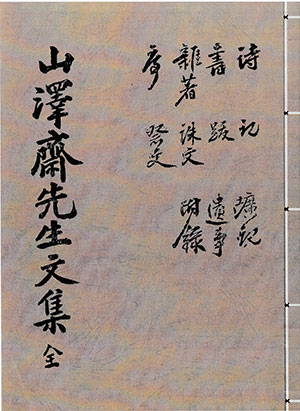 詩 記
書 跋 遺事
雜著 誄文 附錄
序 祭文
山澤齋先生文集 全